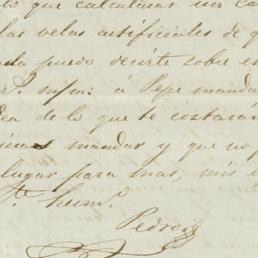 lo que calculias un ca
las velas artificiales de q
ada puedo decirte sobre es
á Pepe manda
dea de lo que te costará
mandar y que no p
lugar para mas, mis e
hum.^o
Pedro